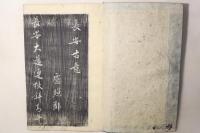 長安古意
盧照鄰
長安大道連狹斜青